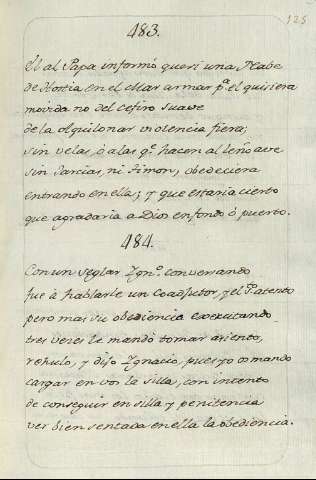 125
483.
El al Papa informó que si una Nabe
de Hostia en el Mar armar pª. el quisiera
movida no del cefiro suave
de la Aquilonar violencia fiera;
sin velas, ó alas qe. hacen al leño ave
sin Jarcias, ni Timon, obedeciera
entrando en ella; y que estaria cierto
que agradaria a Dios en fondo ó puerto.
484.
Con un seglar Ygno. conversando
fue à hablarle un Coadjutor, y el Patento
pero mas su obediencia exexutando
tres veces le mandò tomar asiento,
rehusolo, y dijo Ygnacio, pues yo os mando
cargar en vos la silla, con intento
de conseguir en silla y penitencia
ver bien sentada en ella la obediencia.